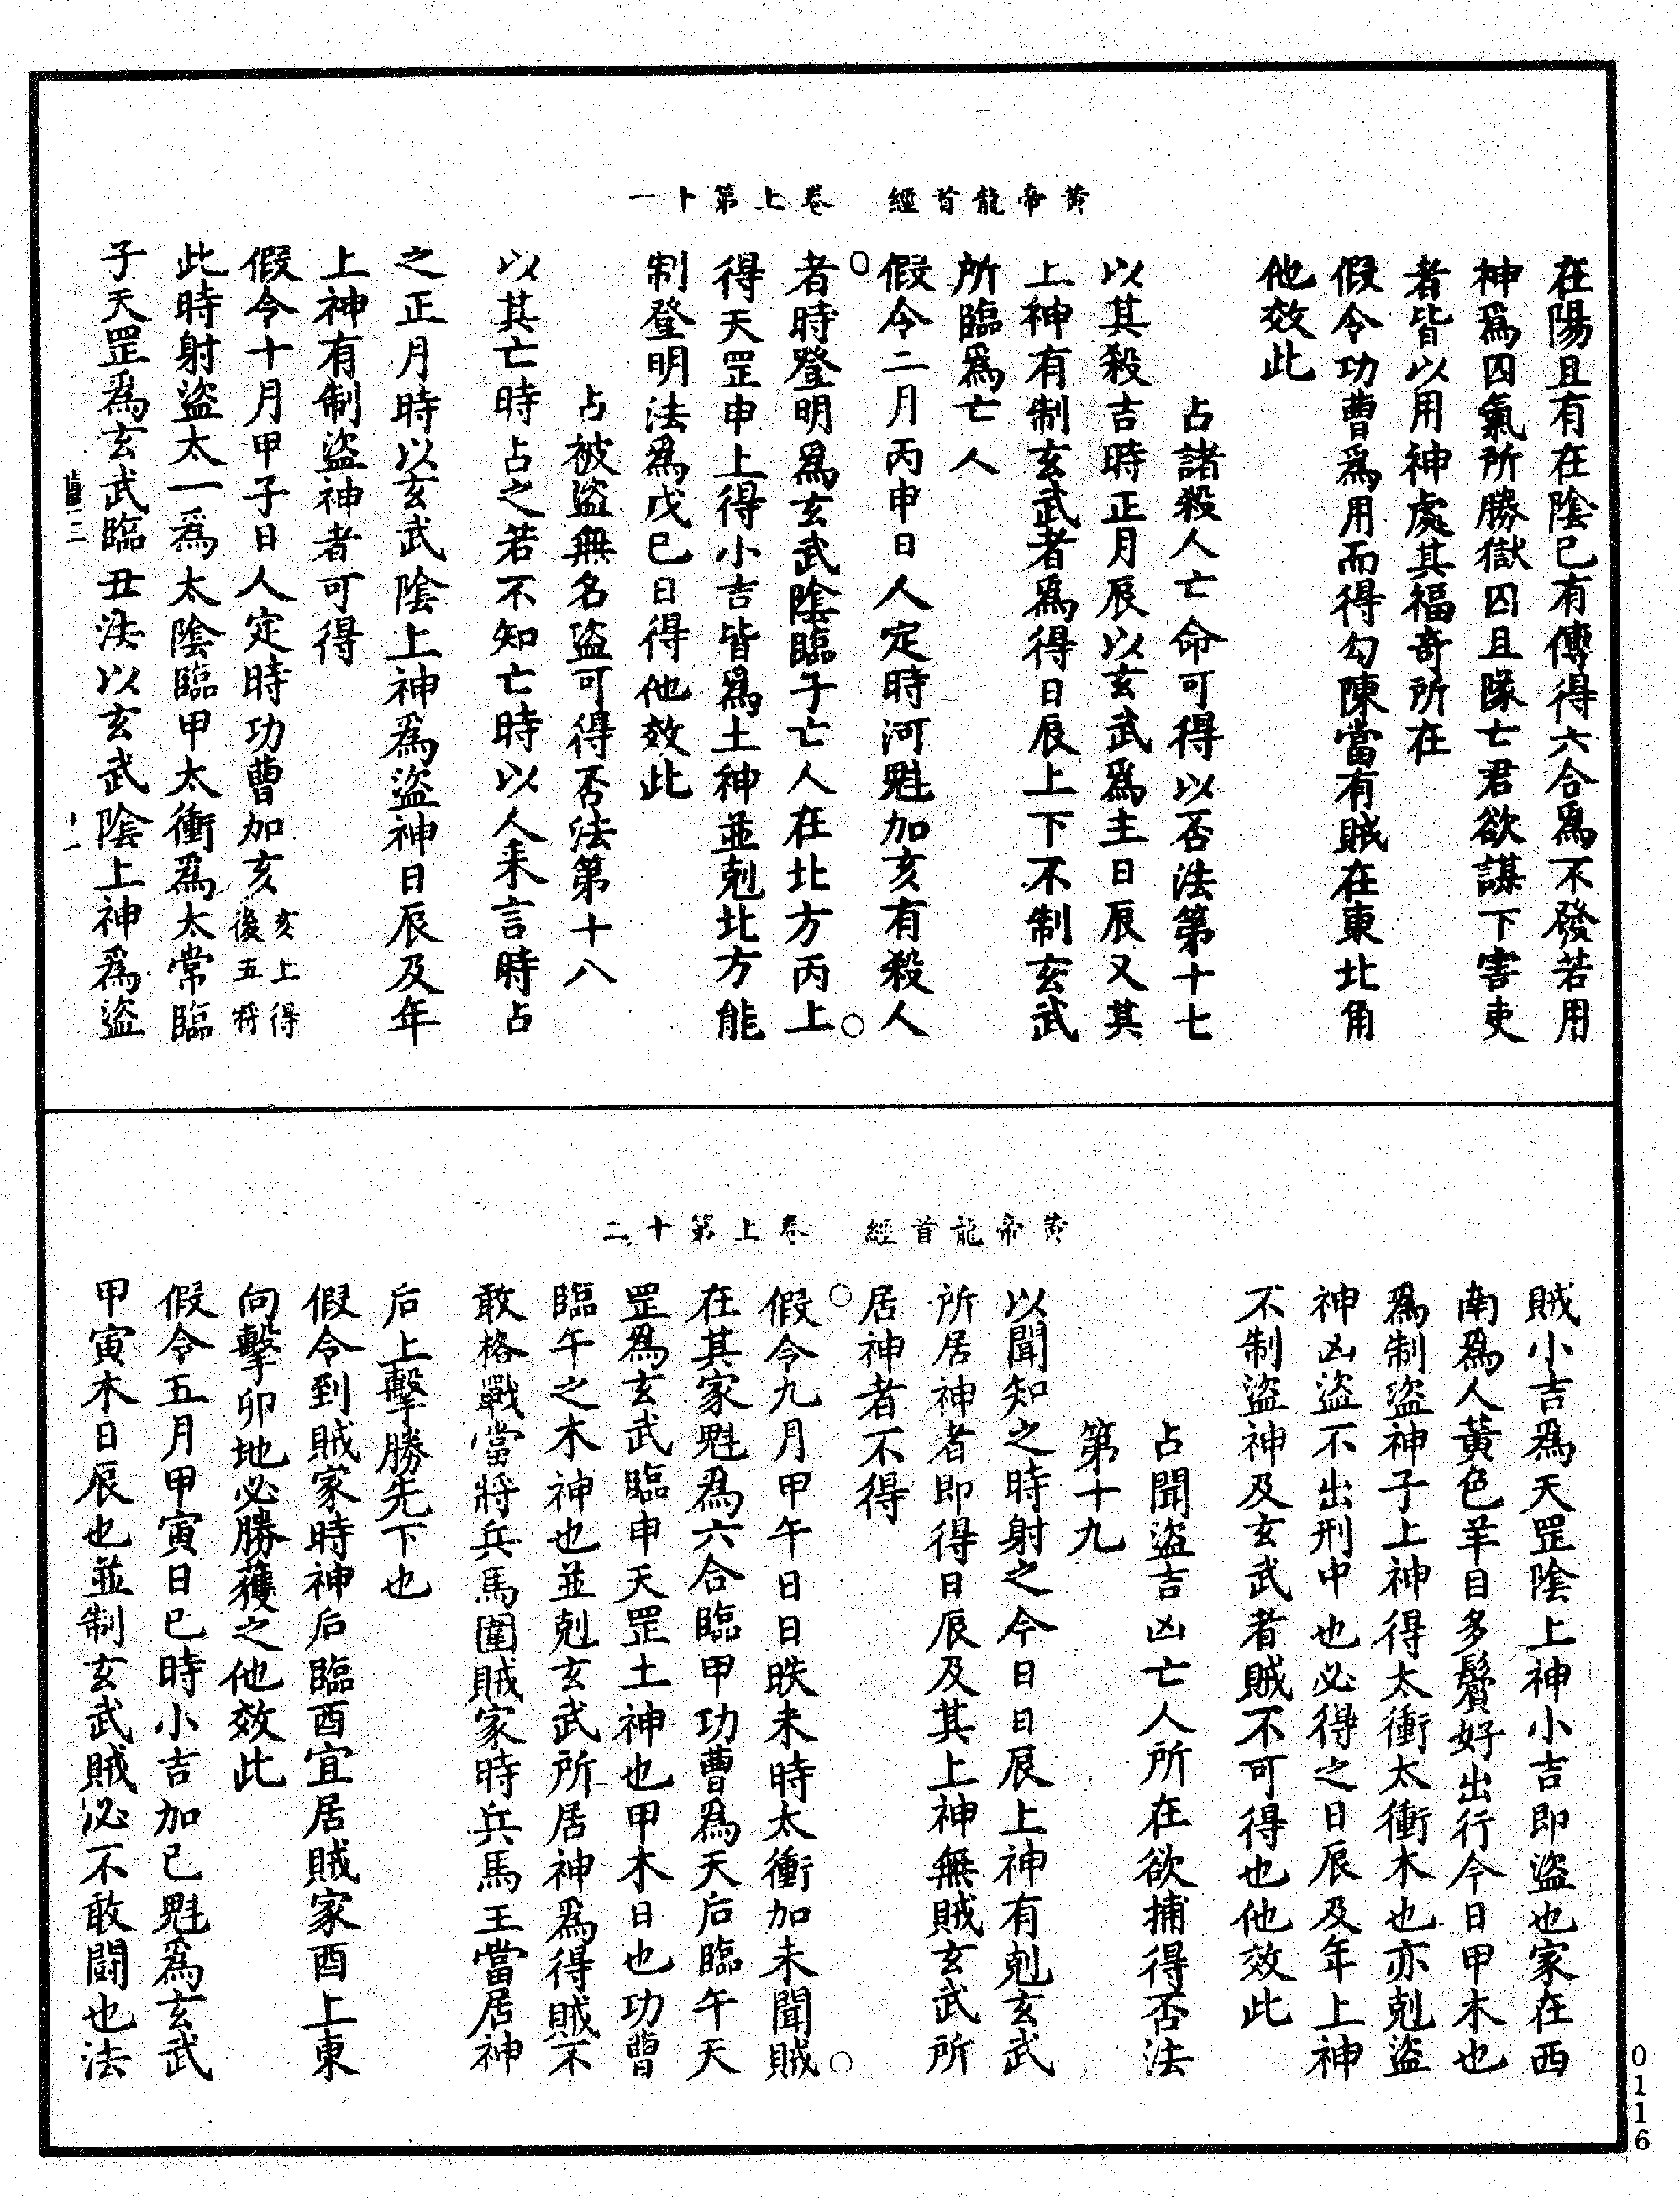 黄帝龍首經　卷上第十一
在陽且有在陰已有傳得六合爲不發若用
神爲囚氣所勝獄囚且隊亡君欲謀下害吏
者皆以用神處其福竒所在
假令功曹爲用而得勾陳當有賊在東北角
他效此
占諸殺人亡命可得以否法第十七
以其殺吉時正月辰以玄武爲主日辰又其
上神有制玄武者爲得日辰上下不制玄武
所臨爲亡人
假令二月丙申日人定時河魁加亥有殺人
者時登明爲玄武陰臨子亡人在北方丙上
得天罡申上得小吉皆爲土神並剋北方能
制登明法爲戊已日得他效此
占被盜無名盜可得否法第十八
以其亡時占之若不知亡時以人来言時占
之正月時以玄武陰上神爲盜神日辰及年
上神有制盜神者可得
假令十月甲子日人定時功曹加亥亥上得後五將
此時射盜太一爲太陰臨甲太衝爲太常臨
子天罡爲玄武臨丑法以玄武陰上神爲盜
十一
黄帝龍首經　卷上第十二
賊小吉爲天罡陰上神小吉即盜也家在西
南爲人黄色羊目多鬚好出行今日甲木也
爲制盜神子上神得太衝太衝木也亦剋盜
神凶盜不出刑中也必得之日辰及年上神
不制盜神及玄武者賊不可得也他效此
占聞盜吉凶亡人所在欲捕得否法
第十九
以聞知之時射之今日日辰上神有剋玄武
所居神者即得日辰及其上神無賊玄武所
居神者不得
假令九月甲午日日昳未時太衝加未聞賊
在其家魁爲六合臨甲功曹爲天后臨午天
罡爲玄武臨申天罡土神也甲木日也功曹
臨午之木神也並剋玄武所居神爲得賊不
敢格戰當將兵馬圍賊家時兵馬王當居神
后上擊勝先下也
假令到賊家時神后臨酉宜居賊家酉上東
向擊卯地必勝獲之他效此
假令五月甲寅日已時小吉加已魁爲玄武
甲寅木日辰也並制玄武賊必不敢闘也法
0116